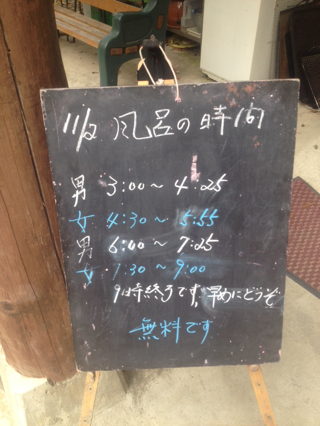 11/2 風呂の時間
男 3:00～4:25
女 4:30～5:55
男 6:00～7:25
女 7:30～9:00
9時終了です、早めにどうぞ
無料です